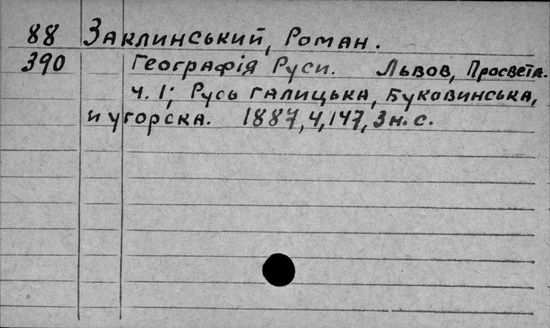 88 Заклинський, Роман.
390 Географія Руси. Львов, Просвета.
ч. 1; Русь галицька, Буковинська,
и угорска. 1887, 4, 147, 3 н. с.